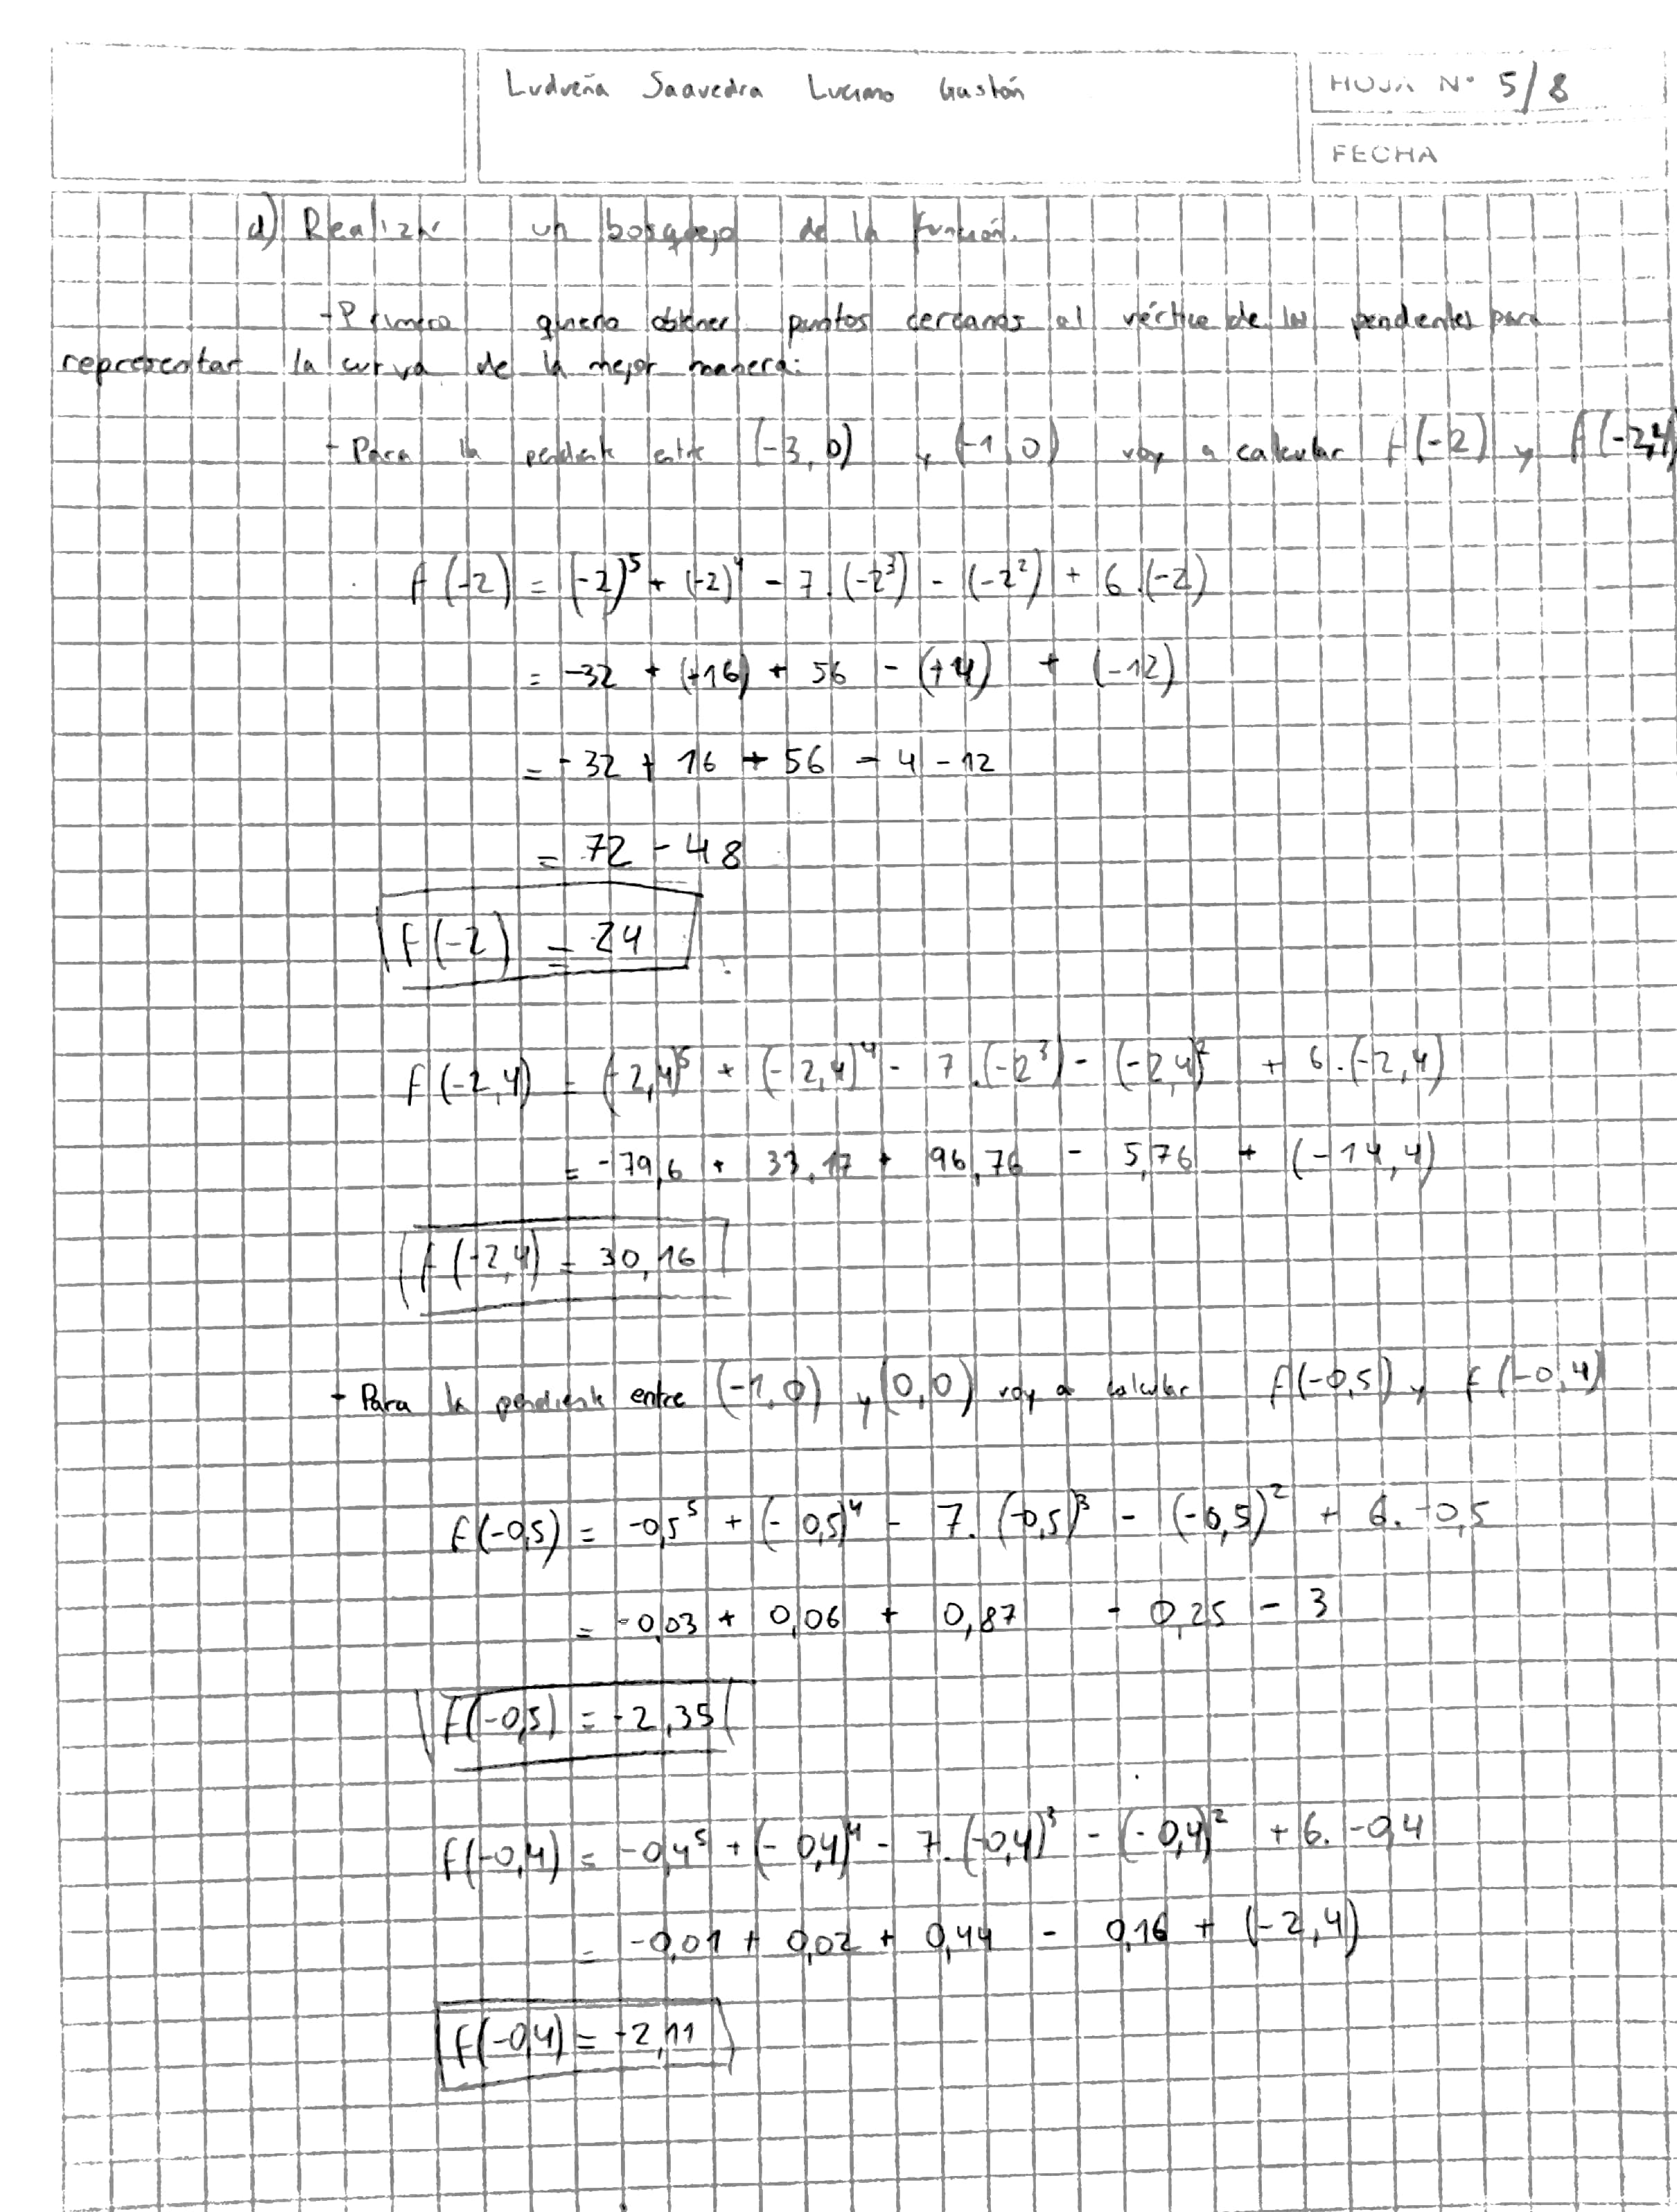 Ludueña Saavedra Luciano Gastón
HOJA N° 5/8
FECHA
d) Realizar un bosquejo de la función.
- Primero quiero obtener puntos cercanos al vértice de las pendientes para
representar la curva de la mejor manera:
- Para la pendiente entre (-3,0) y (-1,0) voy a calcular f(-2) y f(-2,4)
f(-2) = (-2)⁵ + (-2)⁴ - 7.(-2³) - (-2²) + 6.(-2)
= -32 + (+16) + 56 - (+4) + (-12)
= -32 + 16 + 56 - 4 - 12
= 72 - 48
f(-2) = 24
f(-2,4) = (-2,4)⁵ + (-2,4)⁴ - 7.(-2³) - (-2,4)² + 6.(-2,4)
= -79,6 + 33,17 + 96,76 - 5,76 + (-14,4)
f(-2,4) = 30,16
- Para la pendiente entre (-1,0) y (0,0) voy a calcular f(-0,5) y f(-0,4)
f(-0,5) = -0,5⁵ + (-0,5)⁴ - 7.(-0,5)³ - (-0,5)² + 6.-0,5
= -0,03 + 0,06 + 0,87 - 0,25 - 3
f(-0,5) = -2,35
f(-0,4) = -0,4⁵ + (-0,4)⁴ - 7.(-0,4)³ - (-0,4)² + 6.-0,4
= -0,01 + 0,02 + 0,44 - 0,16 + (-2,4)
f(-0,4) = -2,11